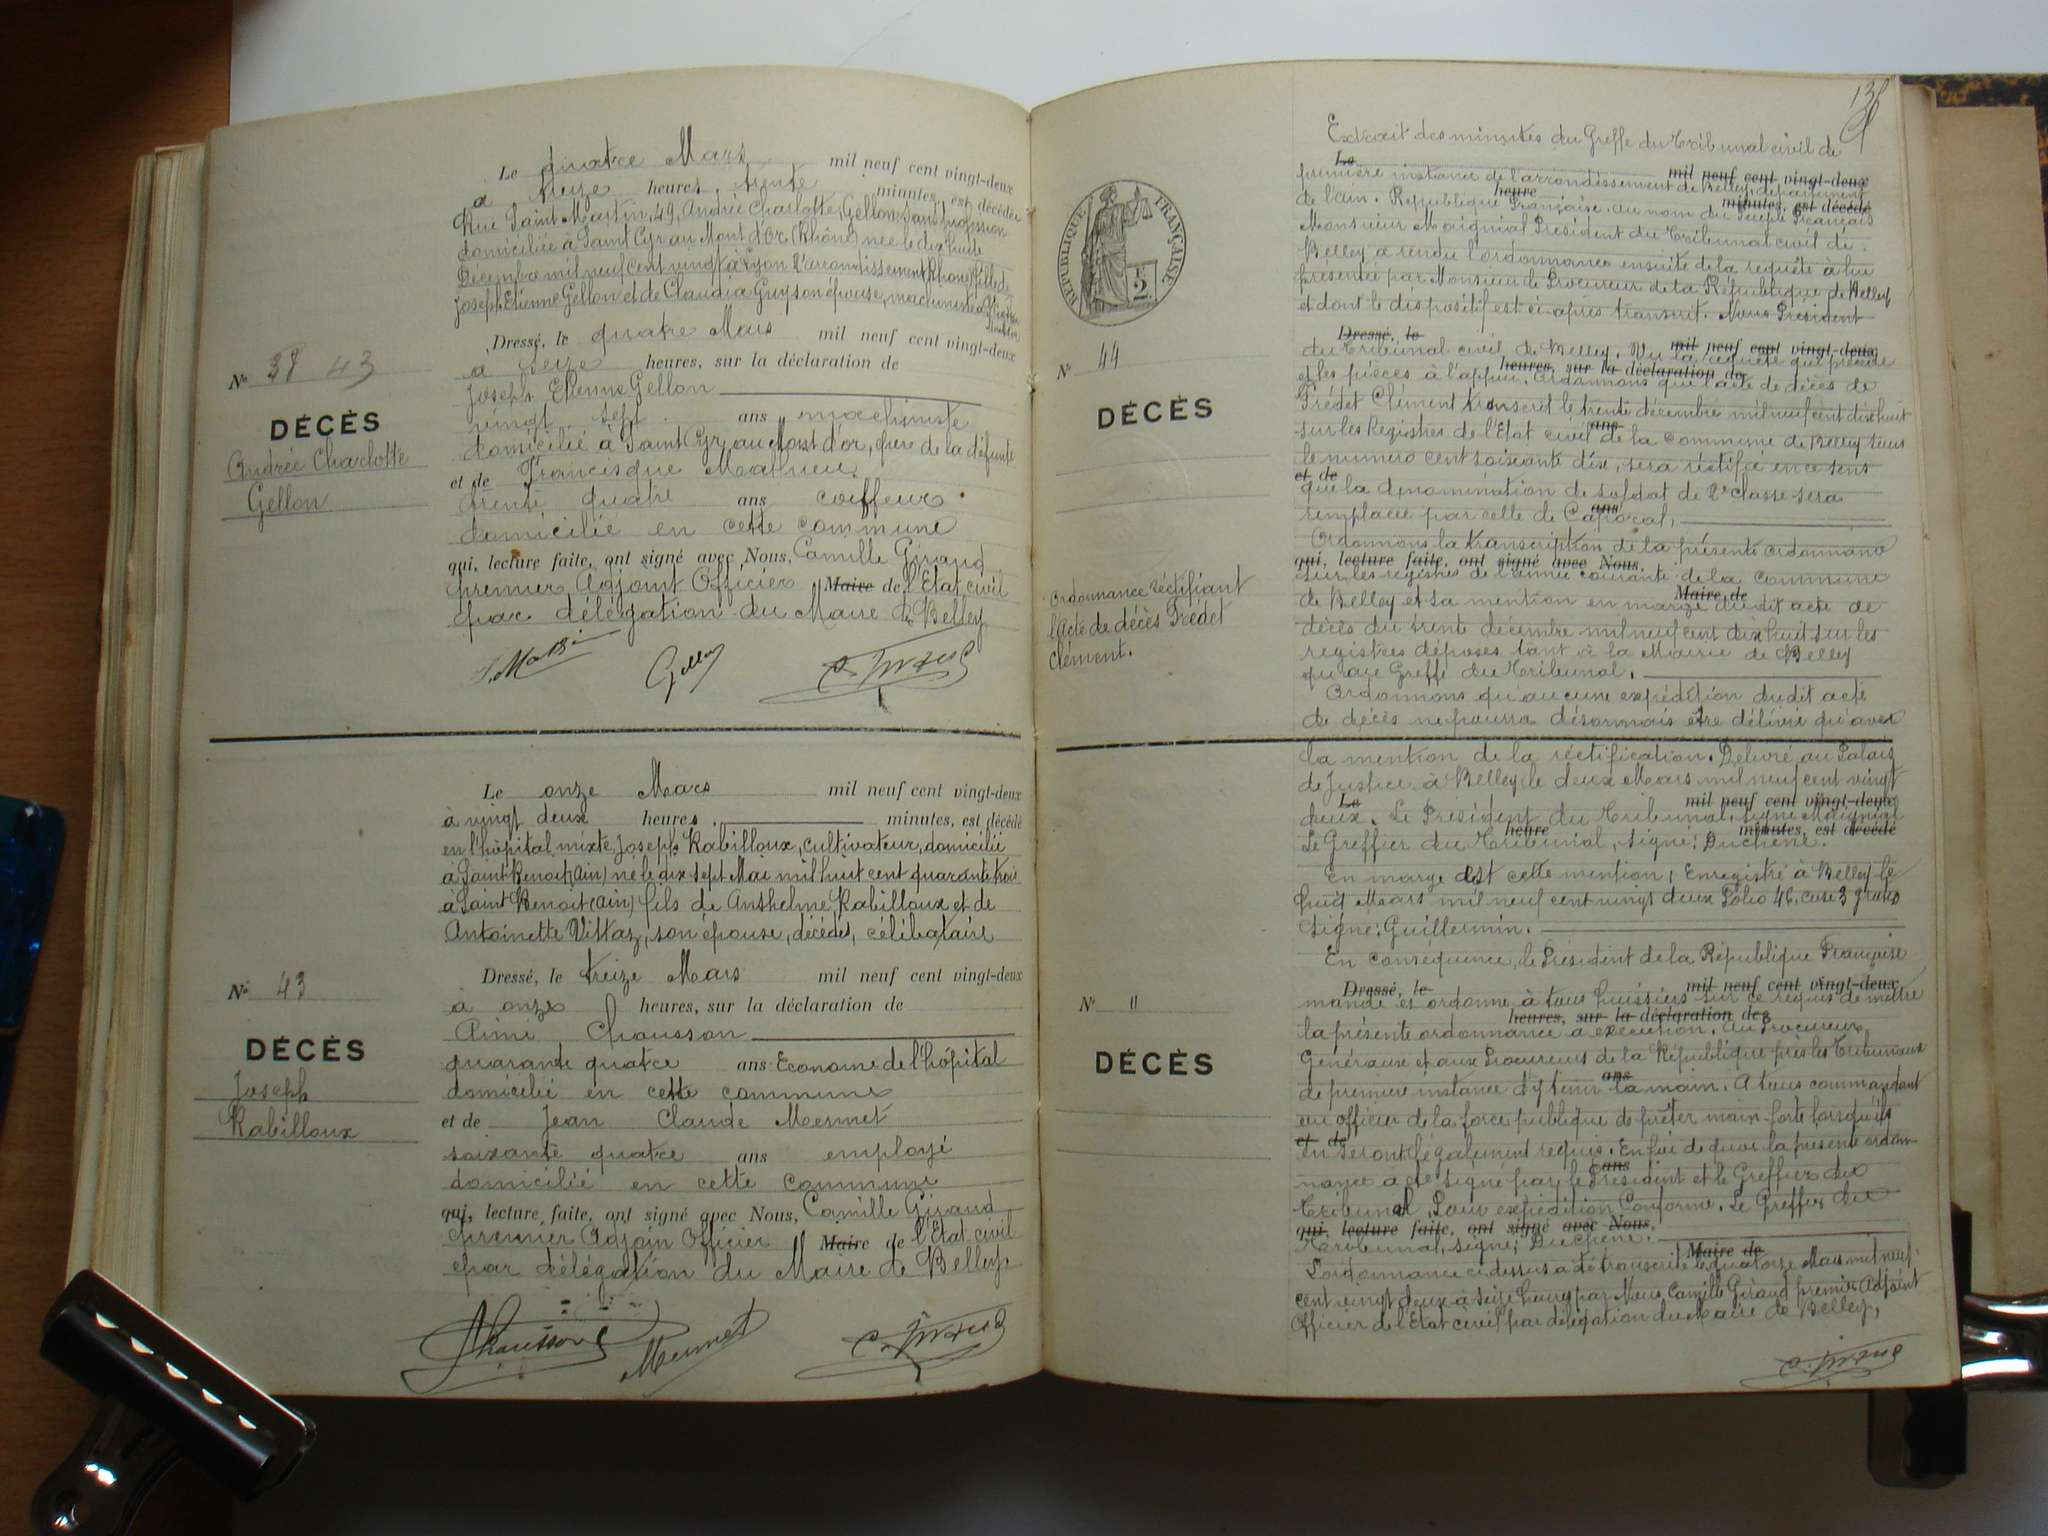 Le quatre Mars mil neuf cent vingt-deux
a treize heures, trente minutes, est décédée
Rue Saint Martin, 49, Andrée Charlotte, Gellon, sans profession
domiciliée à Saint Cyr au Mont d'Or (Rhône) née le dix huit
Décembre mil neuf cent vingt à Lyon 2e arrondissement, Rhône, fille de
Joseph Etienne Gellon et de Claudia Guy son épouse, machiniste à
Dressé, le quatre Mars mil neuf cent vingt-deux
a seize heures, sur la déclaration de
Joseph Etienne Gellon
vingt sept ans machiniste
domicilié à Saint Cyr au Mont d'or, père de la défunte
et de Francisque Mathieu
trente quatre ans coiffeur
domicilié en cette commune
qui, lecture faite, ont signé avec Nous, Camille Giraud
premier Adjoint Officier Maire de l'Etat civil
par délégation du Maire de Belley
Gellon C. Giraud
N° 38 43
DÉCÈS
Andrée Charlotte
Gellon
Le onze Mars mil neuf cent vingt-deux
à vingt deux heures, minutes, est décédé
en l'hôpital mixte, Joseph Rabilloux, cultivateur, domicilié
à Saint Benoit (Ain) né le dix sept Mai mil huit cent quarante trois
à Saint Benoit (Ain) fils de Anthelme Rabilloux et de
Antoinette Vittaz, son épouse, décédés, célibataire
Dressé, le treize Mars mil neuf cent vingt-deux
à onze heures, sur la déclaration de
Aimé Chausson
quarante quatre ans Econome de l'hôpital
domicilié en cette commune
et de Jean Claude Mermet
soixante quatre ans employé
domicilié en cette commune
qui, lecture faite, ont signé avec Nous, Camille Giraud
premier Adjoin Officier Maire de l'Etat civil
par délégation du Maire de Belley
Chausson Mermet C. Giraud
N° 43
DÉCÈS
Joseph
Rabilloux
RÉPUBLIQUE FRANÇAISE
N° 44
DÉCÈS
Ordonnance rectifiant
l'Acte de décès Frédet
Clément.
Extrait des minutes du Greffe du Tribunal civil de
Le mil neuf cent vingt-deux
première instance de l'arrondissement de Belley, département
heure minutes, est décédé
de l'ain. République Française. au nom du Peuple Français
Monsieur Maignial Président du Tribunal civil de
Belley a rendu l'ordonnance ensuite de la requête à lui
présentée par Monsieur le Procureur de la République de Belley
et dont le dispositif est ci-après transcrit. Nous Président
Dressé, le mil neuf cent vingt-deux
du Tribunal civil de Belley. Vu la requête qui précède
heures, sur la déclaration de
et les pièces à l'appui. Ordonnons que l'acte de décès de
Frédet Clément transcrit le trente décembre mil neuf cent dix huit
ans
sur les Registres de l'Etat civil de la Commune de Belley sous
le numéro cent soixante dix, sera rectifié en ce sens
et de
que la dénomination de soldat de 2e classe sera
ans
remplacée par celle de Caporal,
Ordonnons la transcription de la présente ordonnance
qui, lecture faite, ont signé avec Nous,
sur les registres de l'année courante de la commune
Maire de
de Belley et sa mention en marge dudit acte de
décès du trente décembre mil neuf cent dix huit sur les
registres déposés tant à la Mairie de Belley
qu'au Greffe du Tribunal.
Ordonnons qu'aucune expédition dudit acte
de décès ne pourra désormais être délivré qu'avec
la mention de la réctification. Délivré au Palais
de Justice à Belley, le deux Mars mil neuf cent vingt
Le mil neuf cent vingt-deux
deux. Le Président du Tribunal, signé Maignial
heure minutes, est décédé
Le Greffier du Tribunal, signé: Duchêne.
En marge est cette mention; Enregistré à Belley le
huit Mars mil neuf cent vingt deux Folio 46, case 3 gratis
signé: Guillermin.
En conséquence, le Président de la République Française
Dressé, le mil neuf cent vingt-deux,
mande et ordonne à tous huissiers sur ce requis de mettre
heures, sur la déclaration des
la présente ordonnance à exécution. Au Procureurs
Généraux et aux Procureurs de la République près les Tribunaux
ans
de première instance d'y tenir la main. A tous commandant
ou officier de la force publique de prêter main-forte lorsqu'ils
et de
en seront légalement requis. En foi de quoi la présente ordon-
ans
nance a été signé par le Président et le Greffier du
Tribunal. Pour expédition Conforme. Le Greffier du
qui, lecture faite, ont signé avec Nous,
Tribunal, signé; Duchêne.
Maire de
L'ordonnance ci-dessus a été transcrite le quatorze Mars mil neuf
cent vingt deux à seize heures par Nous Camille Giraud premier Adjoint
Officier de l'Etat civil par délégation du Maire de Belley,
C. Giraud
N° 11
DÉCÈS